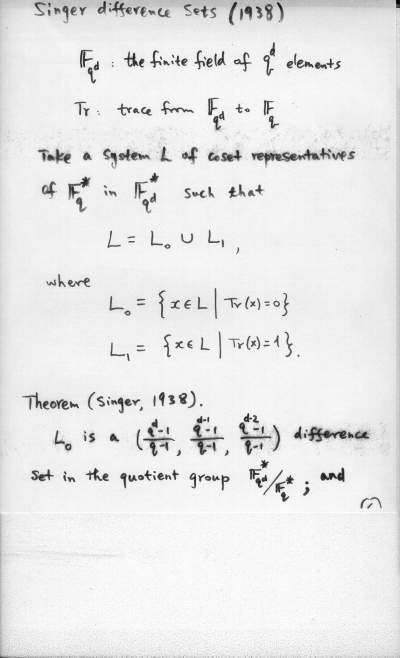 Singer difference Sets (1938)
𝔽_{q^d} : the finite field of q^d elements
Tr : trace from 𝔽_{q^d} to 𝔽_q
Take a system L of coset representatives
of 𝔽_q^* in 𝔽_{q^d}^* such that
L = L₀ ∪ L₁ ,
where
L₀ = {x ∈ L | Tr(x)=0}
L₁ = {x ∈ L | Tr(x)=1}.
Theorem (Singer, 1938).
L₀ is a ((q^d-1)/(q-1), (q^{d-1}-1)/(q-1), (q^{d-2}-1)/(q-1)) difference
set in the quotient group 𝔽_{q^d}^*/𝔽_q^* ; and